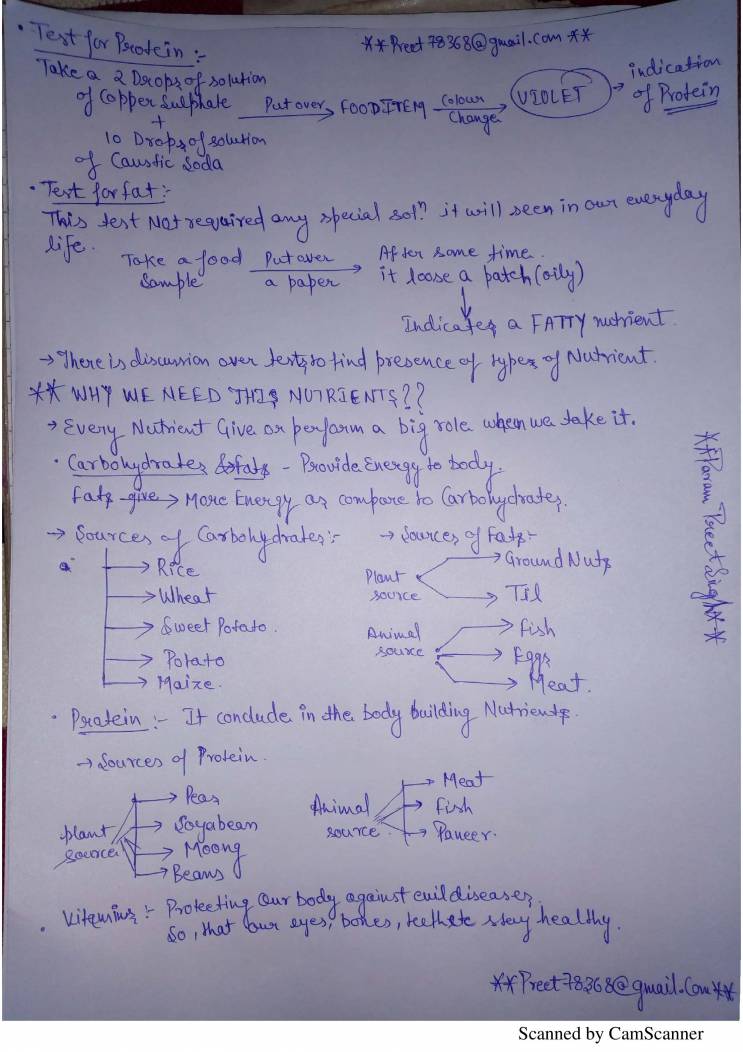 • Test for Protein :-
**Preet78368@gmail.com**
Take a 2 Drops of solution
of Copper Sulphate
+
10 Drops of solution
of Caustic Soda
Put over
FOOD ITEM
Colour
Change
VIOLET
indication
of Protein
• Test for fat :-
This test Not required any special solⁿ. it will seen in our everyday
life.
Take a food
Sample
Put over
a paper
After some time.
it loose a patch (oily)
Indicates a FATTY nutrient.
→ There is discussion over tests to find presence of types of Nutrient.
** WHY WE NEED THIS NUTRIENTS??
→ Every Nutrient Give or perform a big role when we take it.
• Carbohydrates & fats - Provide Energy to body.
Fats give → More Energy as compare to Carbohydrates.
→ Sources of Carbohydrates :-
→ Rice
→ Wheat
→ Sweet Potato.
→ Potato
→ Maize.
→ Sources of Fats :-
Plant
source
→ Ground Nuts
→ Til
Animal
source
→ Fish
→ Eggs
→ Meat.
**Param Preet Singh**
• Protein :- It conclude in the body building Nutrients.
→ Sources of Protein.
plant
source
→ Peas
→ Soyabean
→ Moong
→ Beans
Animal
source
→ Meat
→ Fish
→ Paneer.
• Vitamins :- Protecting Our body against evil diseases.
So, that our eyes, bones, teeth etc stay healthy.
**Preet78368@gmail.com**
Scanned by CamScanner